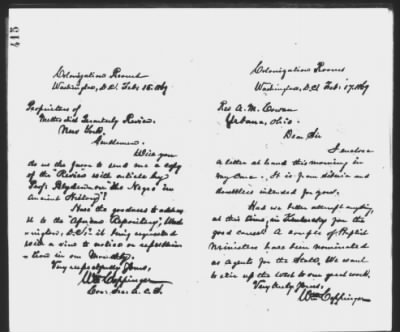 415
Colonization Rooms
Washington, D.C. Feb: 15. 1869
Proprietors of
Methodist Quarterly Review.
New York.
Gentlemen.
Will you
do us the favor to send me a copy
of the Review with article by
Prof: Blyden on "the Negro in
Ancient History"?
Have the goodness to address
it to the "African Repository", Wash
ington, D.C.: it being requested
with a view to notice or republica
tion in our Monthly.
Very respectfully yours,
Wm Coppinger
Cor: Sec: A.C.S.
Colonization Rooms
Washington, D.C. Feb: 17. 1869
Rev A. M. Cowan
Urbana, Ohio.
Dear Sir
I enclose
a letter at hand this morning in
my care. It is from Liberia and
doubtless intended for you.
Had we better attempt anything,
at this time, in Kentucky for the
good cause? A couple of Baptist
Ministers have been nominated
as agents for the State. We want
to stir up the West to our great work.
Very truly yours,
Wm Coppinger.